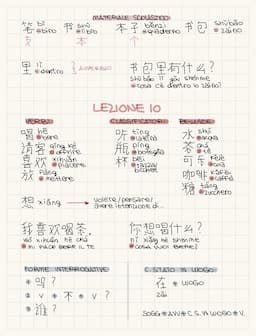 MATERIALE SCOLASTICO
笔 bǐ biro 书 shū libro 本子 běnzi quaderno 书包 shūbāo zaino
支 本 个
里 lǐ dentro
书包里有什么?
shūbāo lǐ yǒu shénme
cosa c'è dentro lo zaino?
LEZIONE 10
VERBI CLASSIFICATORI BEVANDE
喝 hē bere 听 tīng lattina 水 shuǐ acqua
请客 qǐng kè offrire 瓶 píng bottiglia 茶 chá tè
喜欢 xǐhuān piacere 杯 bēi bicchiere 可乐 kělè cola
放 fàng mettere 咖啡 kāfēi caffè
糖 táng zucchero
想 xiǎng volere/pensare/avere intenzione di...
我喜欢喝茶. 你想喝什么?
wǒ xǐhuān hē chá nǐ xiǎng hē shénme
mi piace bere il tè cosa vuoi bere?
FORME INTERROGATIVE C. STATO IN LUOGO
吗? 在
V 不 V? zài
谁? SOGG + AVV + C. S. IN LUOGO + V.